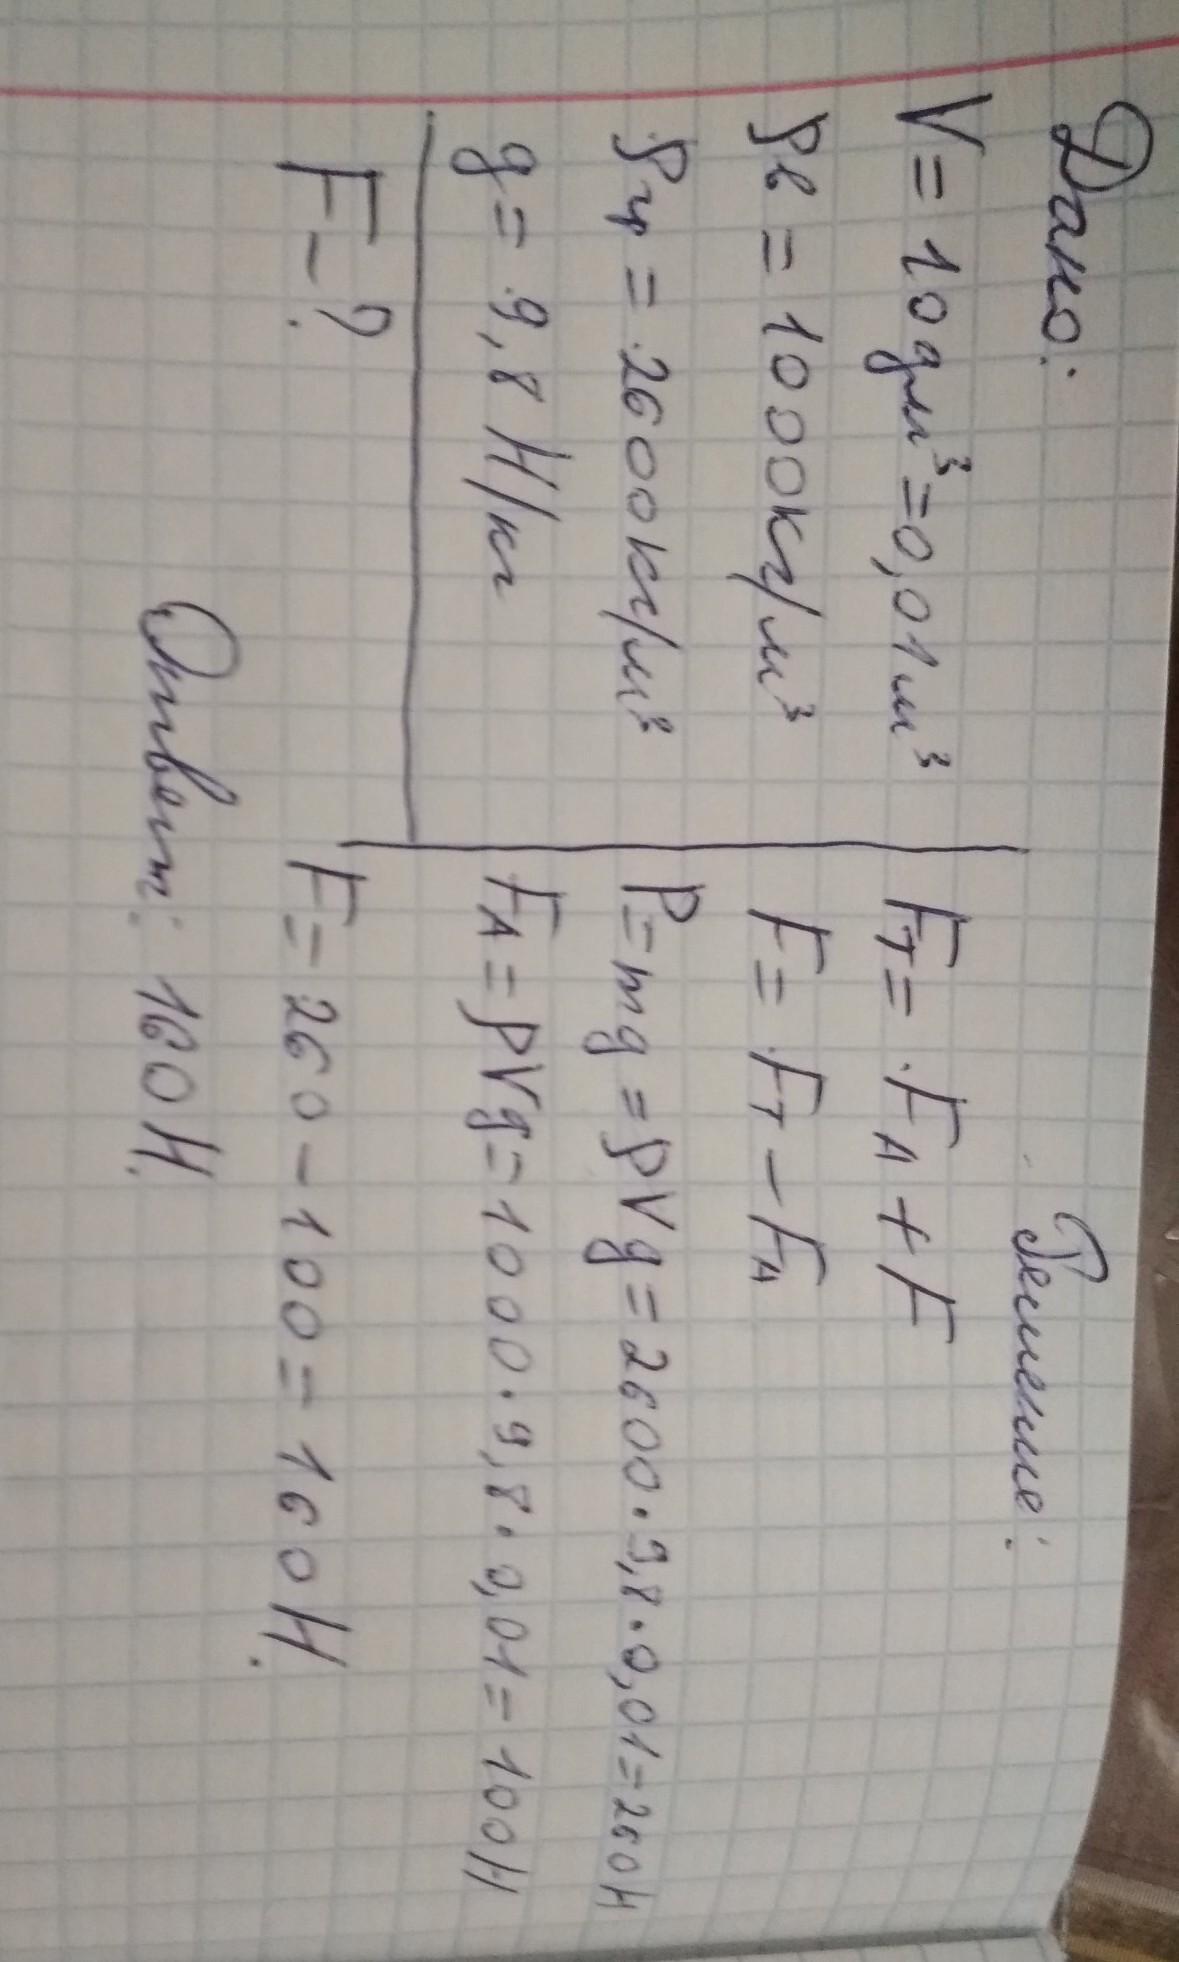 Дано:
V = 10 дм³ = 0,01 м³
ρв = 1000 кг/м³
ρгр = 2600 кг/м³
g = 9,8 Н/кг
F - ?
Решение:
Fт = FА + F
F = Fт - FА
P = mg = ρVg = 2600 · 9,8 · 0,01 = 260 Н
FА = ρVg = 1000 · 9,8 · 0,01 = 100 Н
F = 260 - 100 = 160 Н.
Ответ: 160 Н.